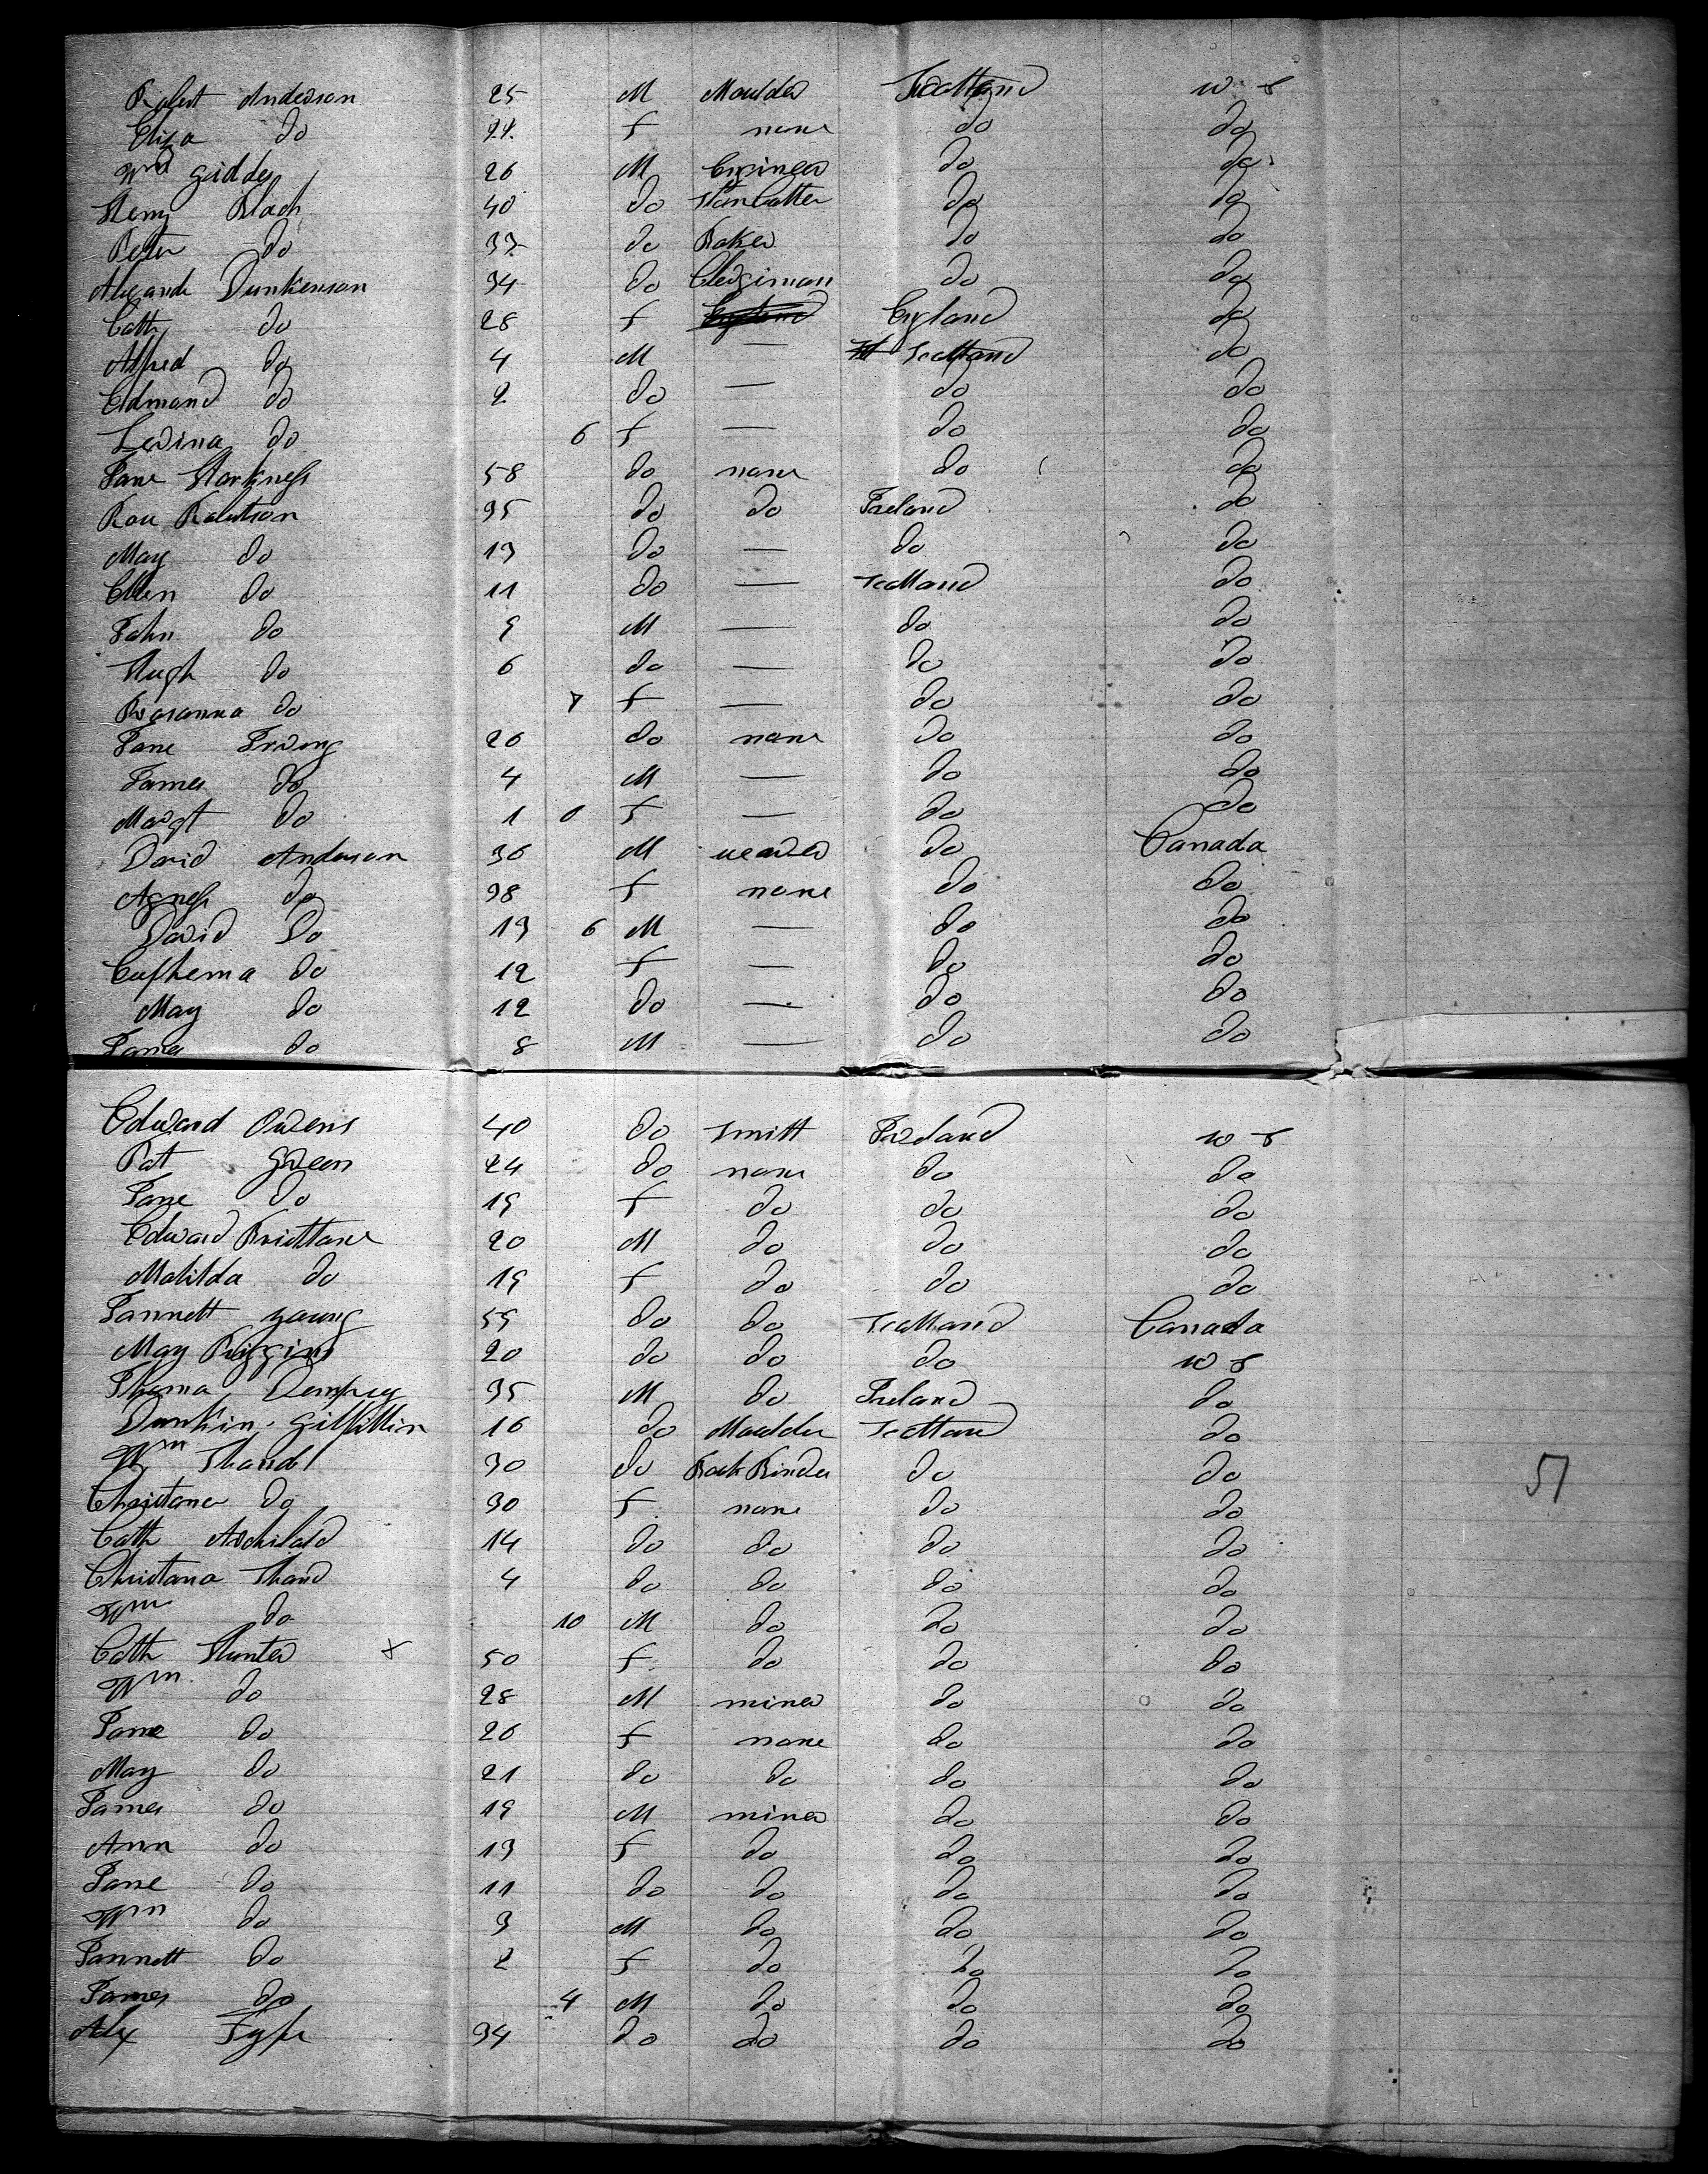 Robert Anderson 25 M Moulder Scotland U S
Eliza do 24 F none do do
Wm Giddes 26 M Engineer do do
Henry Black 40 do Stoncutter do do
Peter do 33 do Baker do do
Alexande Dunkenson 34 do Clergiman do do
Cath do 28 F England England do
Alfred do 4 M — Scotland do
Edmond do 2 do — do do
Levina do 6 F — do do
Jane Harkness 58 do none do do
Rose Robertson 35 do do Ireland do
Mary do 13 do — do do
Ellen do 11 do — Scotland do
John do 9 M — do do
Hugh do 6 do — do do
Rosanna do 7 F — do do
Jane Irving 26 do none do do
James do 4 M — do do
Margt do 1 0 F — do do
David Anderson 36 M weaver do Canada
Agness do 38 F none do do
David Do 13 6 M — do do
Eufhema do 12 F — do do
Mary do 12 do — do do
James do 8 M — do do
Edward Owens 40 do Smitt Ireland U S
Pat Green 24 do none do do
Jane do 19 F do do do
Edward Brittane 20 M do do do
Matilda do 19 F do do do
Jannett Young 59 do do Scotland Canada
Mary Higgins 20 do do do U S
Thomas Dempsey 35 M do Ireland do
Dunkin Gilfillin 16 do Moulder Scotland do
Wm Shand 30 do Book Binder do do
Christana do 30 F none do do
Cath Archibald 14 do do do do
Christana Shand 4 do do do do
Wm do 10 M do do do
Cath Hunter x 50 F do do do
Wm do 28 M miner do do
Jane do 26 F none do do
Mary do 21 do do do do
James do 19 M miner do do
Ann do 13 F do do do
Jane do 11 do do do do
Wm do 3 M do do do
Jannett do 2 F do do do
James do 4 M do do do
Alex Fyfe 34 do do do do
51